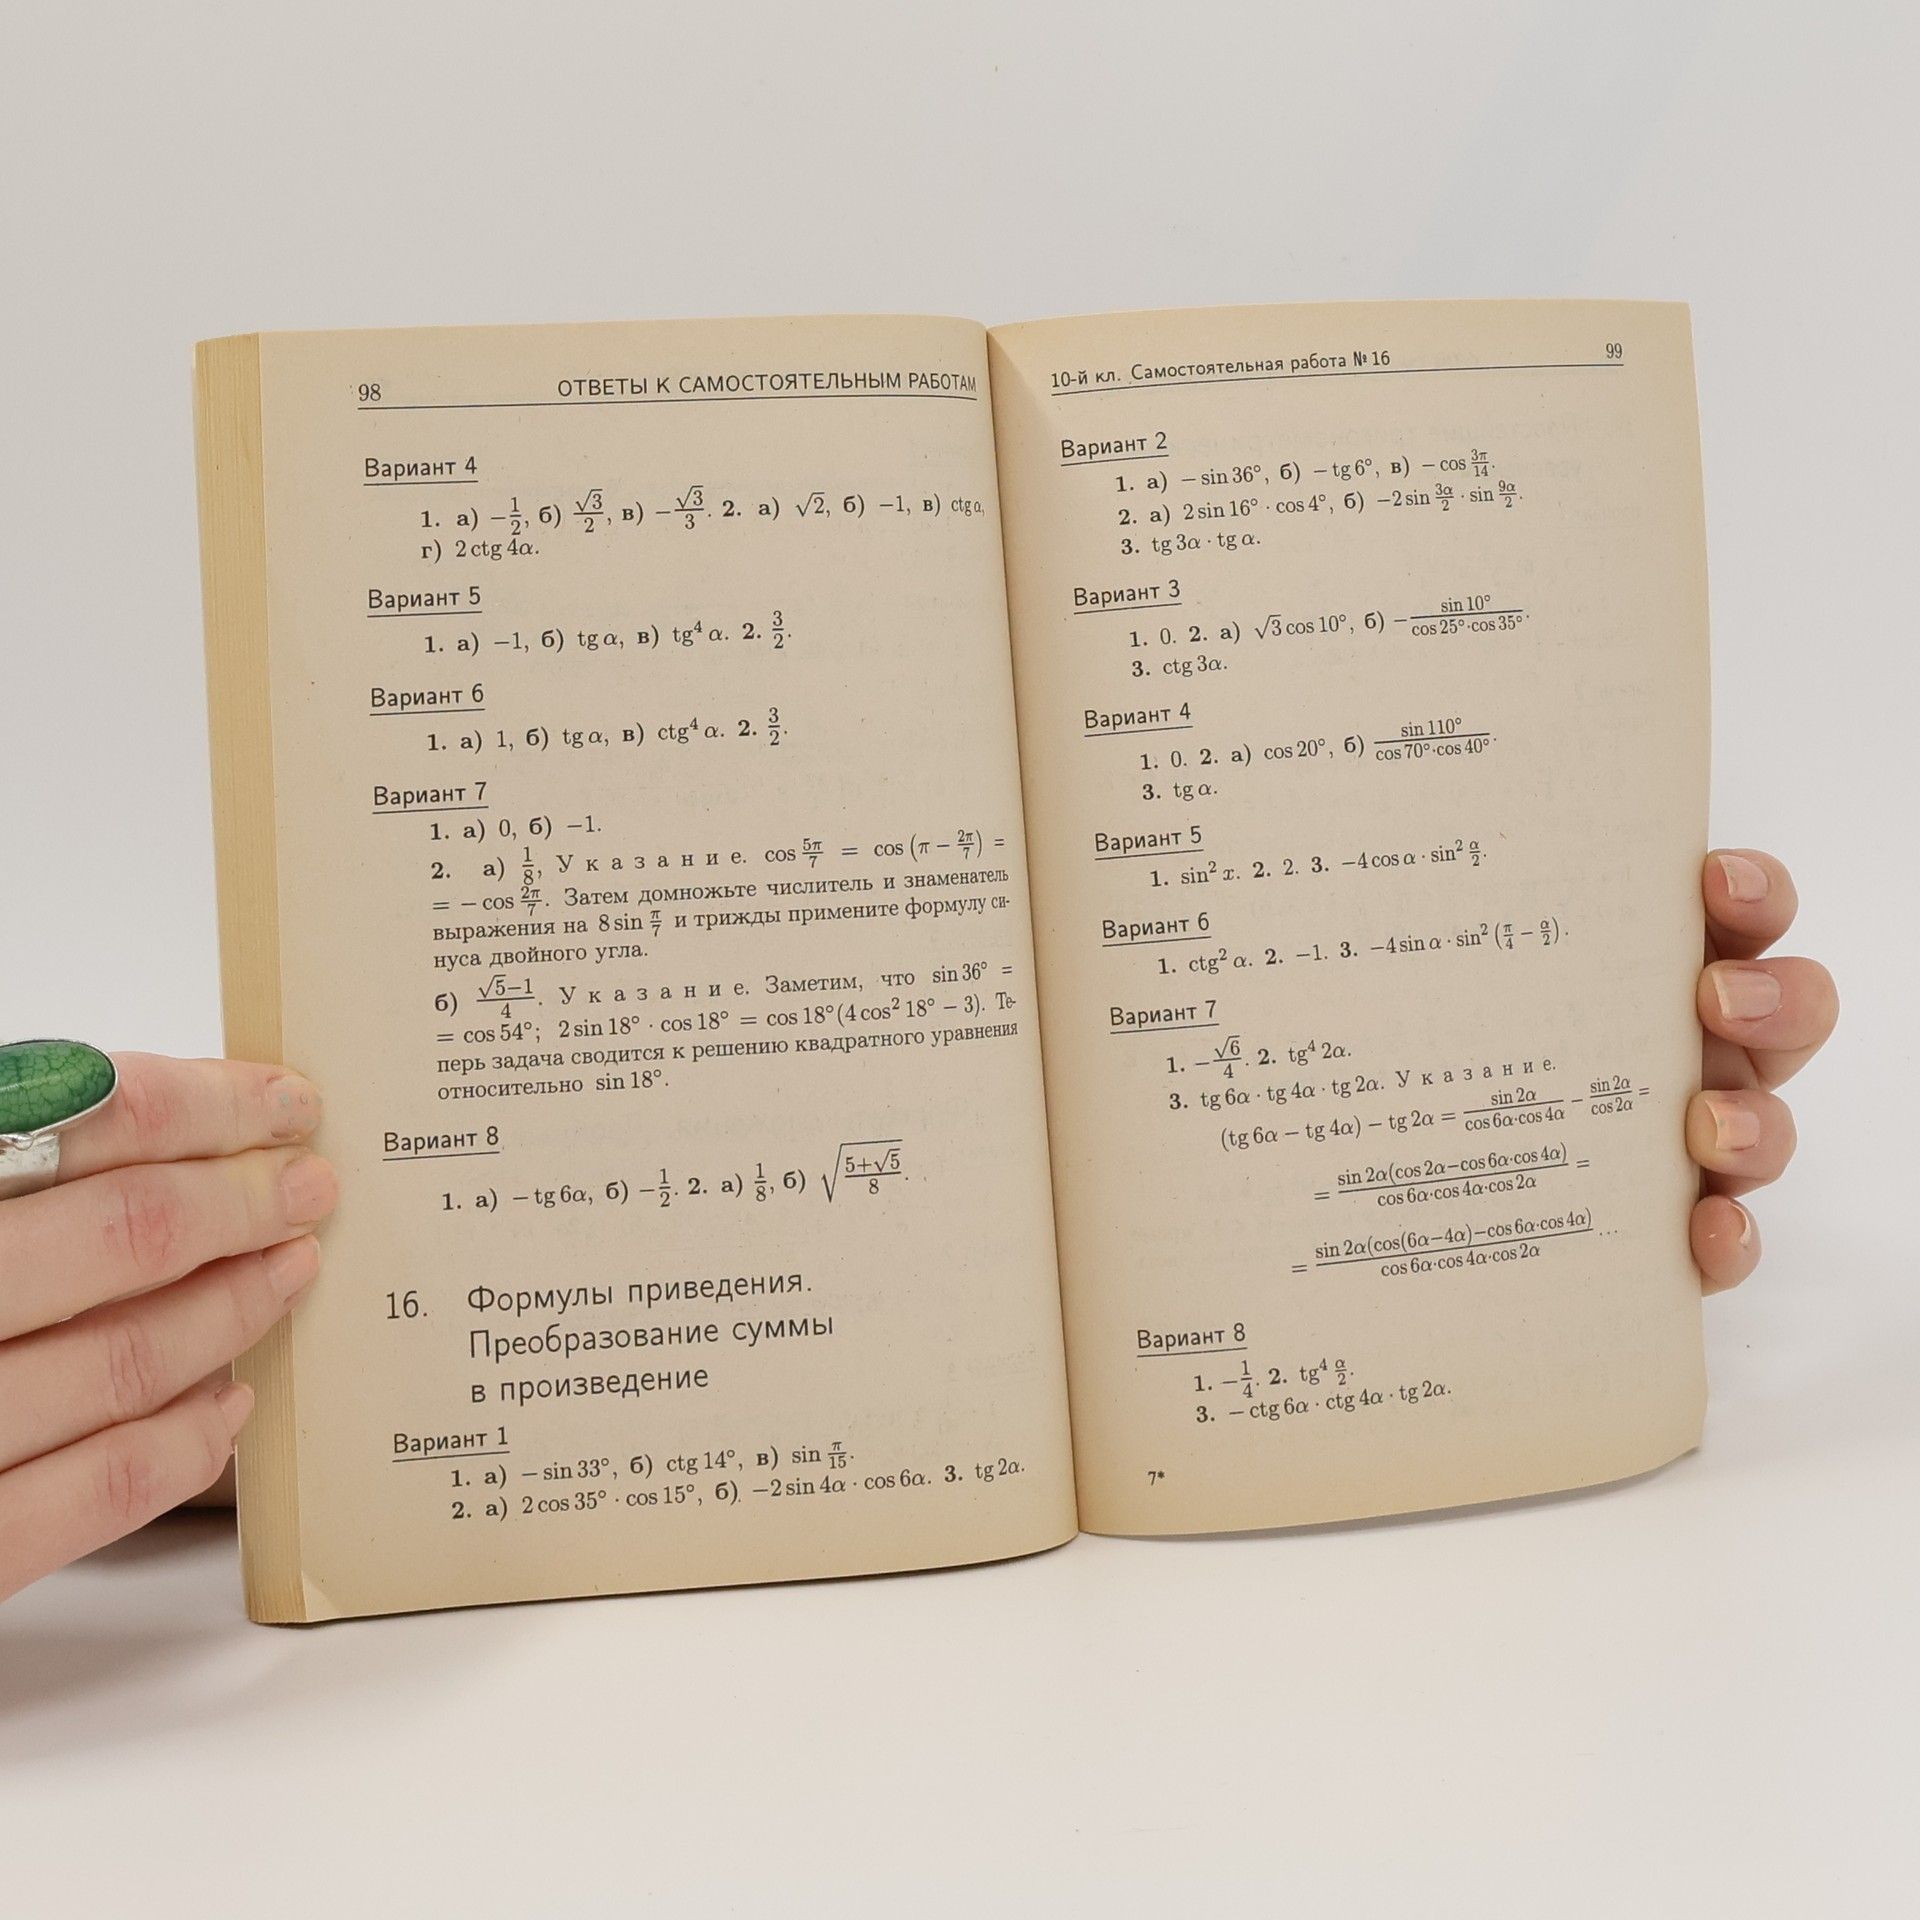 98 ОТВЕТЫ К САМОСТОЯТЕЛЬНЫМ РАБОТАМ
Вариант 4
1. а) −1/2, б) √3/2, в) −√3/3. 2. а) √2, б) −1, в) ctg α,
г) 2 ctg 4α.
Вариант 5
1. а) −1, б) tg α, в) tg⁴ α. 2. 3/2.
Вариант 6
1. а) 1, б) tg α, в) ctg⁴ α. 2. 3/2.
Вариант 7
1. а) 0, б) −1.
2. а) 1/8, У к а з а н и е. cos 5π/7 = cos (π − 2π/7) =
= − cos 2π/7. Затем домножьте числитель и знаменатель
выражения на 8 sin π/7 и трижды примените формулу си-
нуса двойного угла.
б) (√5−1)/4. У к а з а н и е. Заметим, что sin 36° =
= cos 54°; 2 sin 18° · cos 18° = cos 18°(4 cos² 18° − 3). Те-
перь задача сводится к решению квадратного уравнения
относительно sin 18°.
Вариант 8
1. а) − tg 6α, б) −1/2. 2. а) 1/8, б) √((5+√5)/8).
16. Формулы приведения.
Преобразование суммы
в произведение
Вариант 1
1. а) − sin 33°, б) ctg 14°, в) sin π/15.
2. а) 2 cos 35° · cos 15°, б) −2 sin 4α · cos 6α. 3. tg 2α.
10-й кл. Самостоятельная работа № 16 99
Вариант 2
1. а) − sin 36°, б) − tg 6°, в) − cos 3π/14.
2. а) 2 sin 16° · cos 4°, б) −2 sin 3α/2 · sin 9α/2.
3. tg 3α · tg α.
Вариант 3
1. 0. 2. а) √3 cos 10°, б) − sin 10°/(cos 25°·cos 35°).
3. ctg 3α.
Вариант 4
1. 0. 2. а) cos 20°, б) sin 110°/(cos 70°·cos 40°).
3. tg α.
Вариант 5
1. sin² x. 2. 2. 3. −4 cos α · sin² α/2.
Вариант 6
1. ctg² α. 2. −1. 3. −4 sin α · sin² (π/4 − α/2).
Вариант 7
1. −√6/4. 2. tg⁴ 2α.
3. tg 6α · tg 4α · tg 2α. У к а з а н и е.
(tg 6α − tg 4α) − tg 2α = sin 2α/(cos 6α·cos 4α) − sin 2α/cos 2α =
= sin 2α(cos 2α−cos 6α·cos 4α)/(cos 6α·cos 4α·cos 2α) =
= sin 2α(cos(6α−4α)−cos 6α·cos 4α)/(cos 6α·cos 4α·cos 2α) ...
Вариант 8
1. −1/4. 2. tg⁴ α/2.
3. − ctg 6α · ctg 4α · tg 2α.
7*